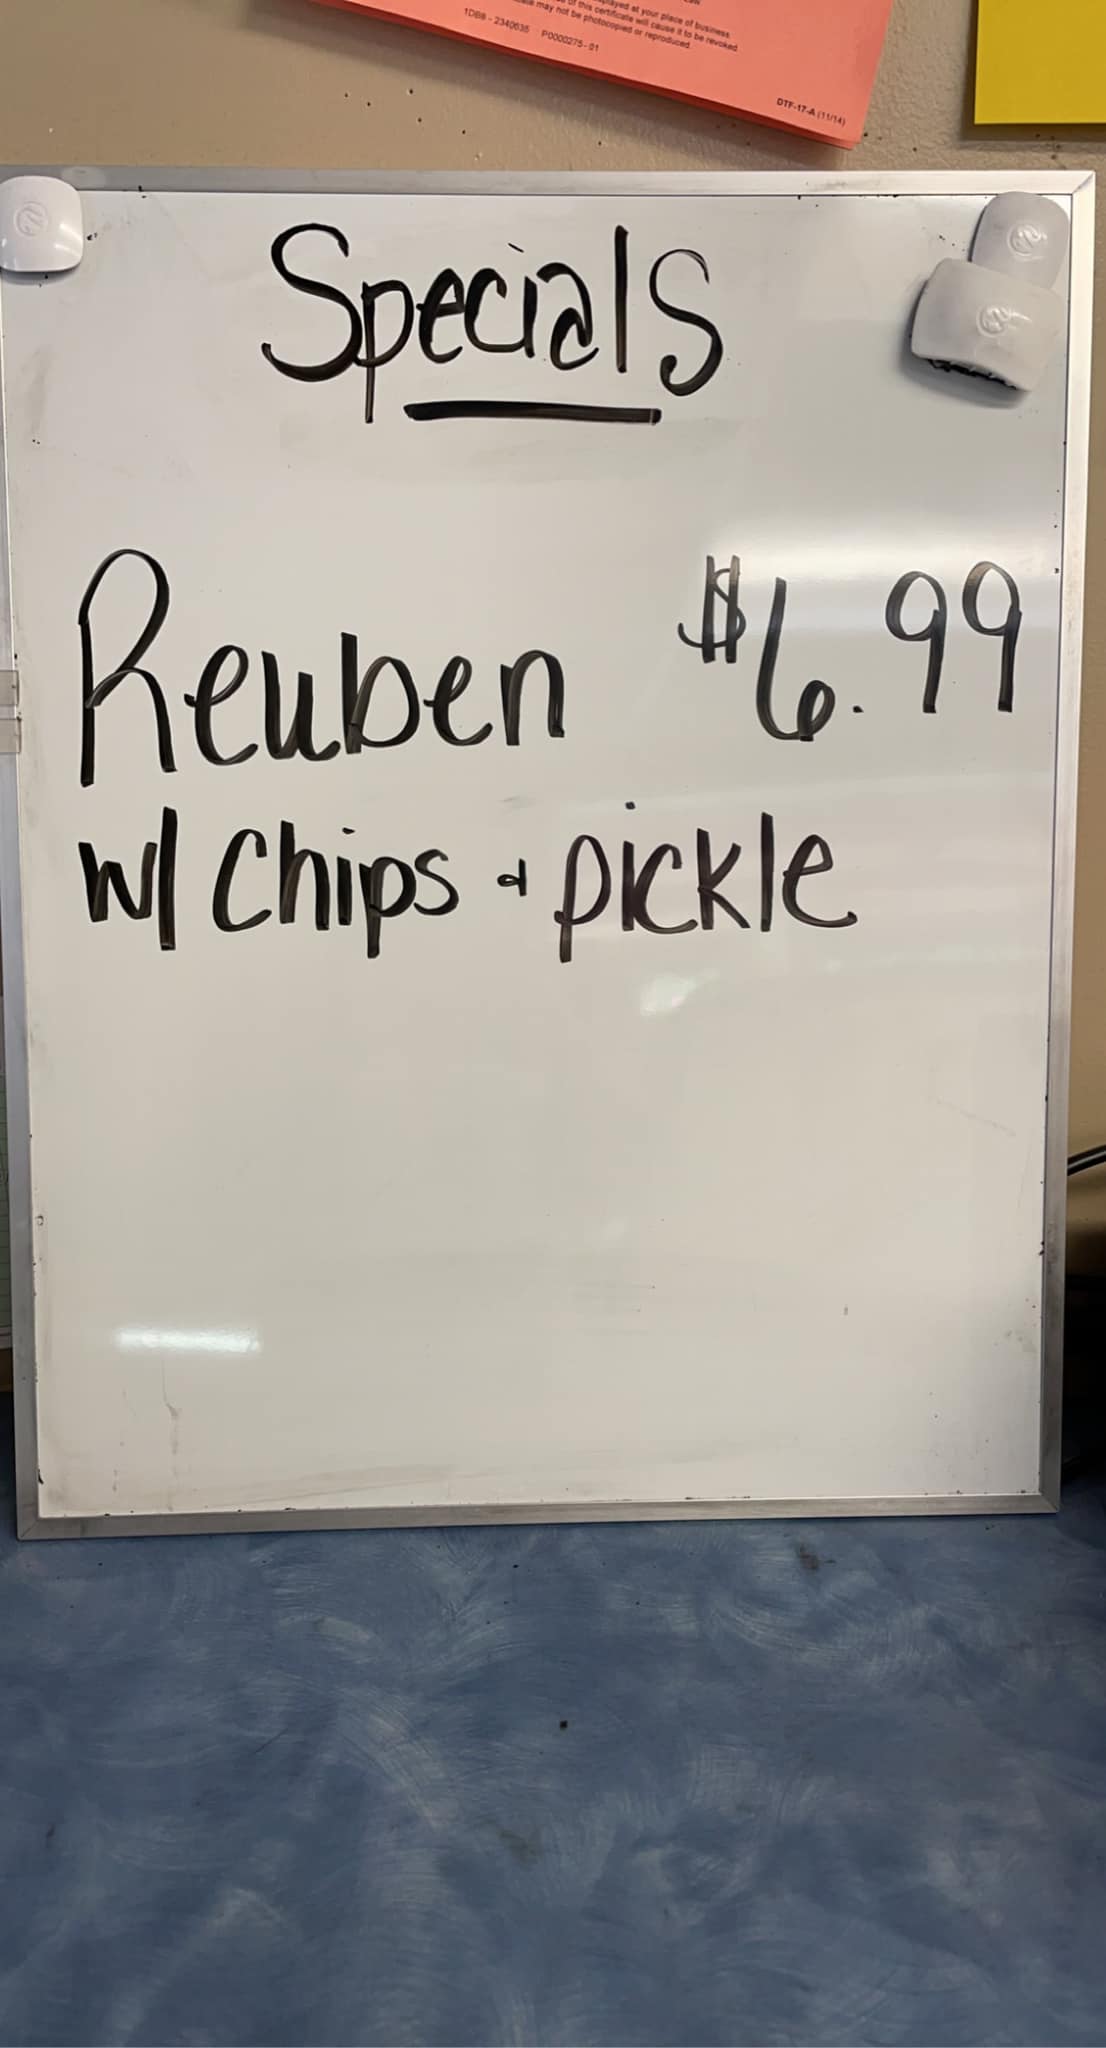 displayed at your place of business.
of this certificate will cause it to be revoked
may not be photocopied or reproduced.
1DB8 - 2340635 P0000275-01
DTF-17-A (11/14)
Specials
Reuben $6.99
w/ Chips & pickle